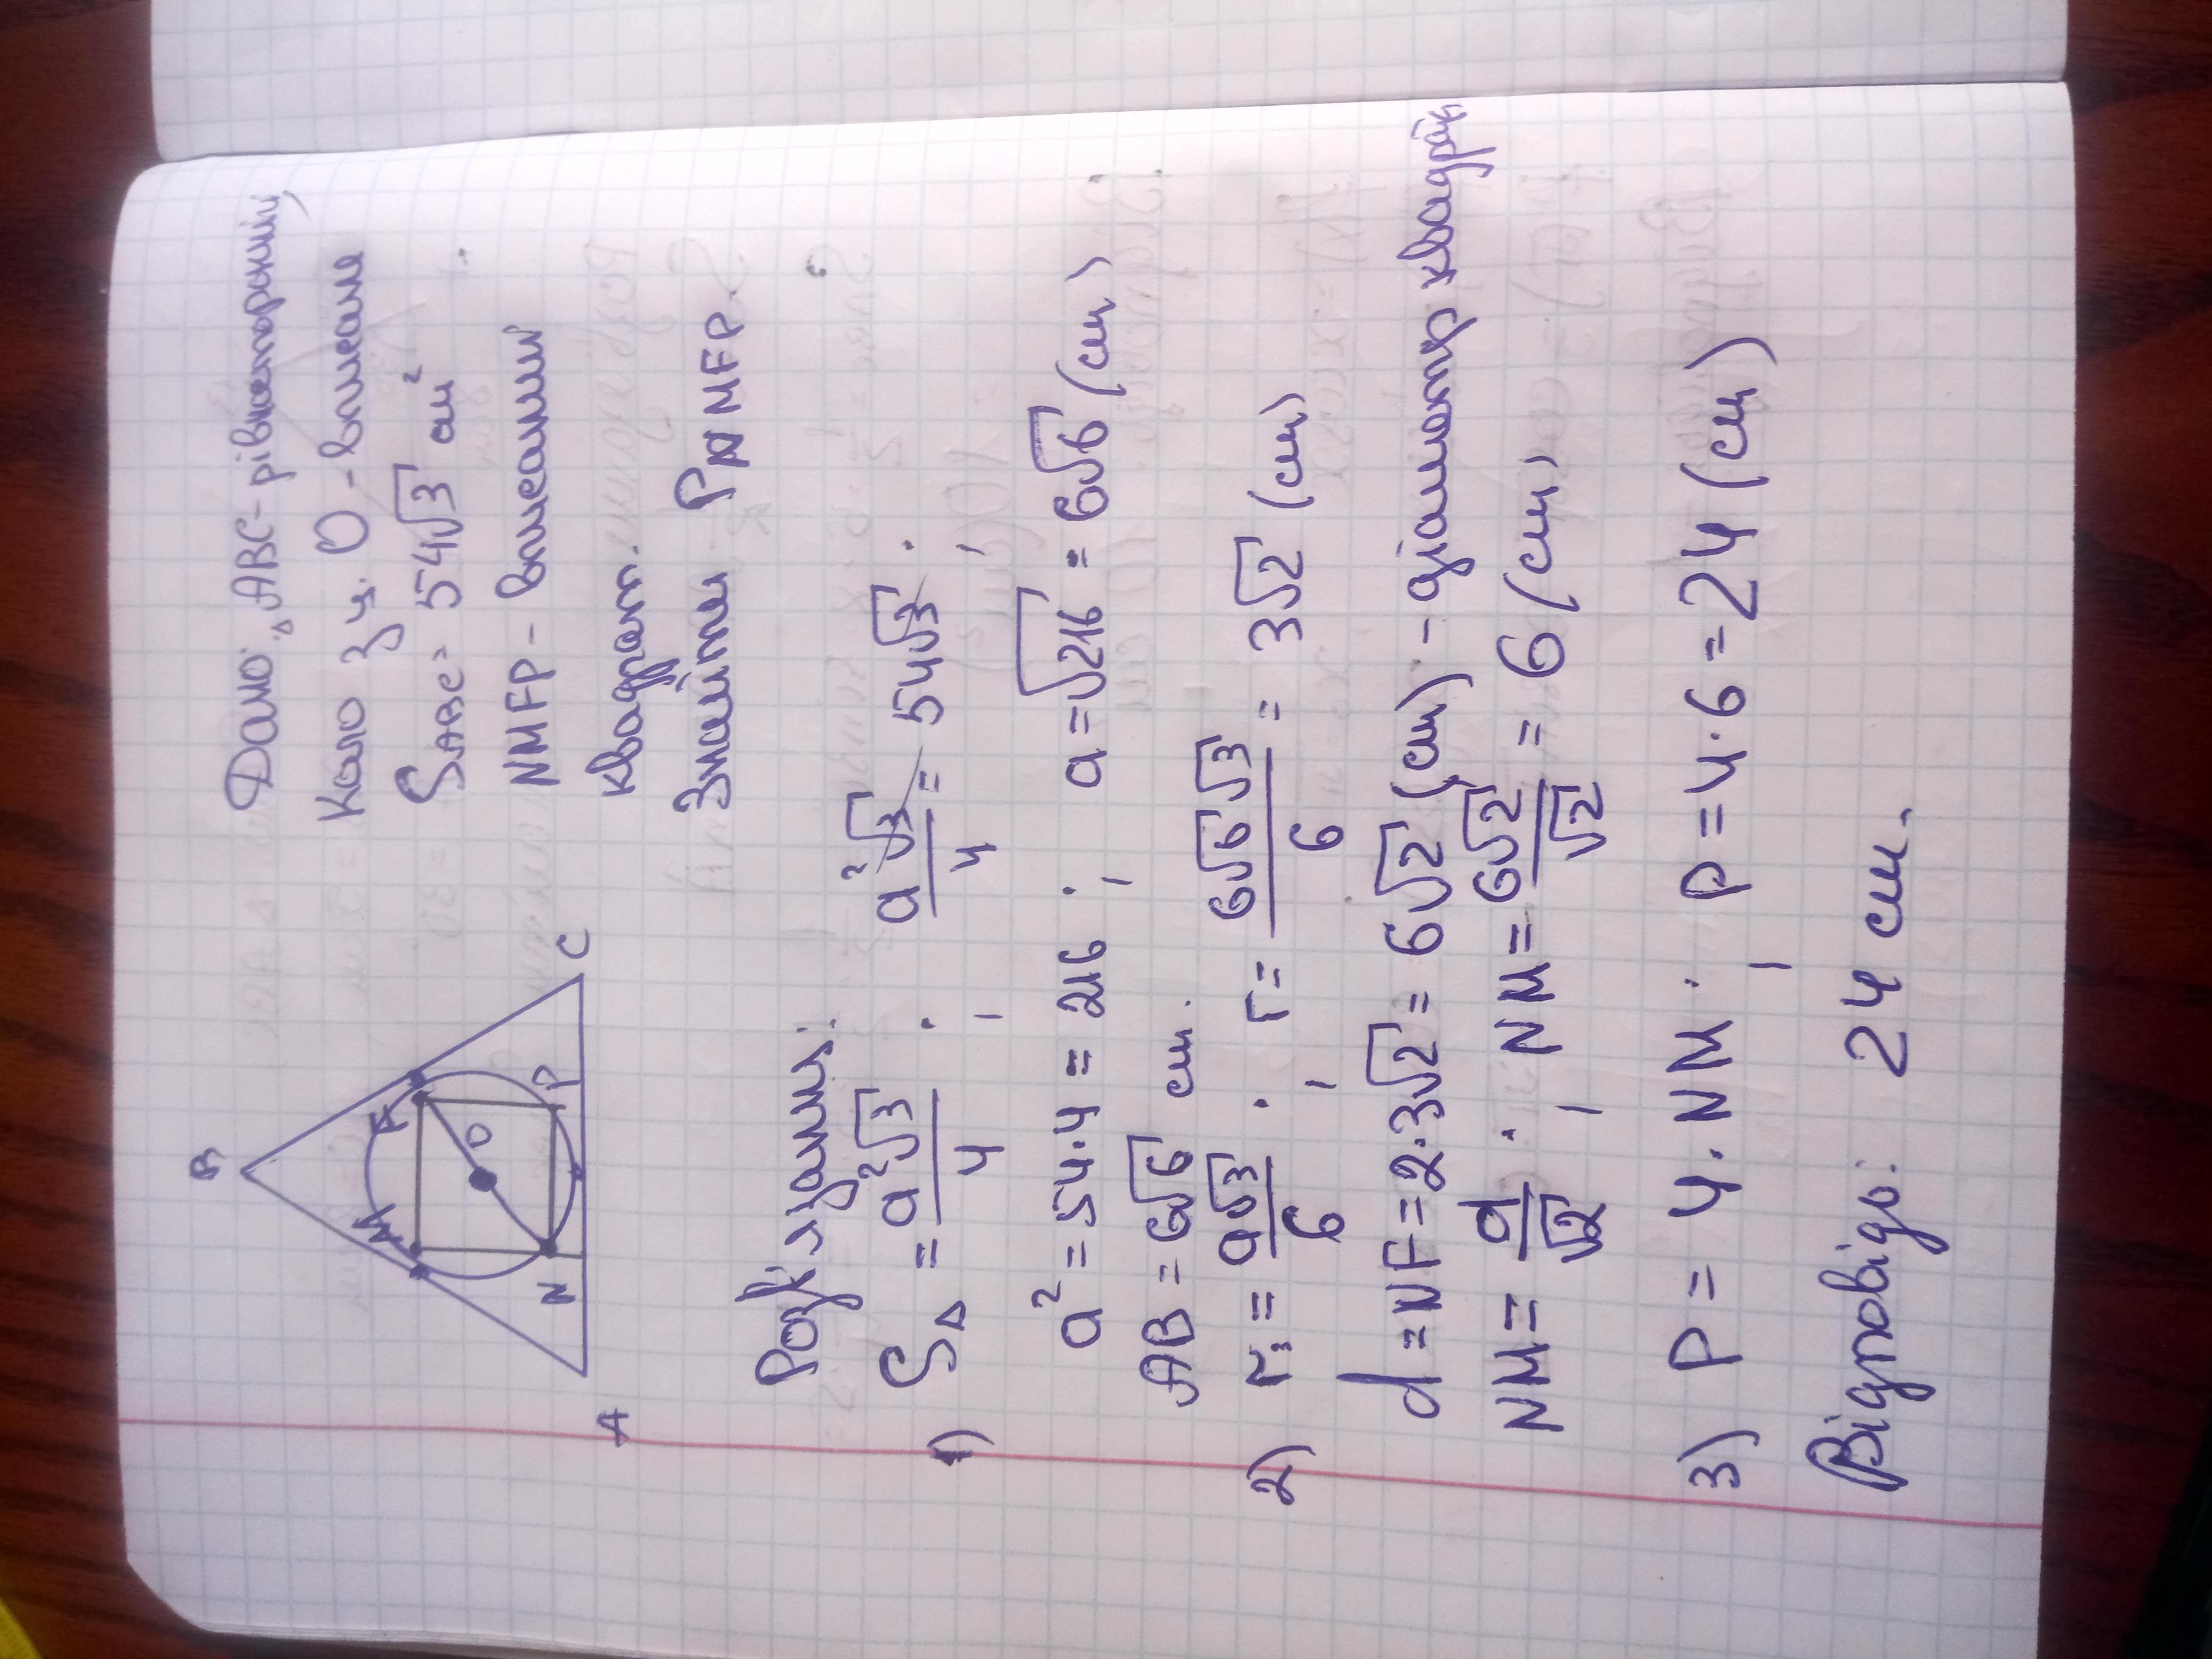 B
M
F
O
N
P
A
C
Дано: △ABC - рівносторонній,
Коло з ц. O - вписане
S ABC = 54√3 см²
NMFP - вписаний
квадрат.
Знайти P NMFP
Розв'язання:
1) S△ = a²√3/4 ; a²√3/4 = 54√3 ;
a² = 54·4 = 216 ; a = √216 = 6√6 (см)
AB = 6√6 см.
2) r₃ = a√3/6 ; r = 6√6√3/6 = 3√2 (см)
d = NF = 2·3√2 = 6√2 (см) - діаметр квадрат
NM = d/√2 ; NM = 6√2/√2 = 6 (см)
3) P = 4·NM ; P = 4·6 = 24 (см)
Відповідь: 24 см.